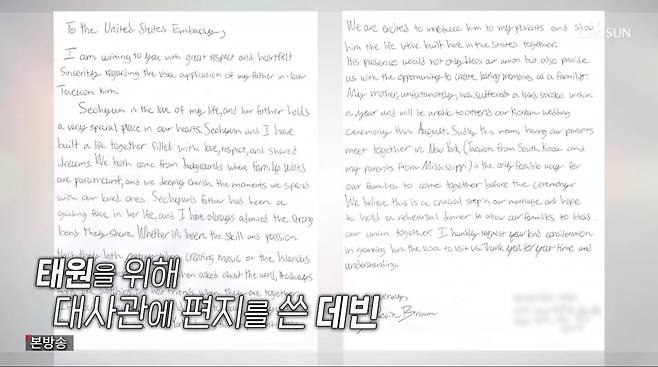 To the United States Embassy,
I am writing to you with great respect and heartfelt
Sincerity regarding the visa application of my father in-law
Taewon Kim.
Seohyun is the love of my life, and her father holds
a very special place in our hearts. Seohyun and I have
built a life together filled with love, respect, and shared
dreams. We both come from backgrounds where family values
are paramount, and we deeply cherish the moments we spend
with our loved ones. Seohyun's father has been a
guiding force in her life, and I have always admired the strong
bond they share. Whether it's been the skill and passion
they both creating music or the
when asked about the world,
best friends when they are together
We are excited to introduce him to my parents and show
him the life we've built here in the states together.
His presence would not only bless our union but also provide
us with the opportunity to create lasting memories as a family.
My mother, unfortunately, has suffered a third stroke within
a year and will be unable to attend our Korean wedding
ceremony this August. Sadly this means having our parents
meet together in New York (Taewon from South Korea and
my parents from Mississippi) is the only feasible way for
our families to come together before the ceremony.
We believe this is a crucial step in our marriage and hope
to hold a rehearsal dinner to allow our families to bless
our union together. I humbly request your kind consideration
in granting him the visa to visit us. Thank you for your time and
understanding.
Sincerely,
Devin Brown
CHOSUN
태원을 위해
대사관에 편지를 쓴 데빈
본방송